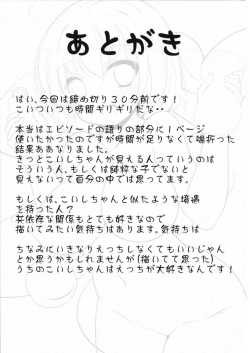 あとがき
はい、今回は締め切り30分前です！
こいついつも時間ギリギリだな・・
本当はエピソードの語りの部分に1ページ
使いたかったのですが時間が足りなくて端折った
結果ああなりました。
きっとこいしちゃんが見える人っていうのは
そういう人、もしくは純粋な子でないと
見えないって自分の中では思ってます。
もしくは、こいしちゃんと似たような境遇
を持った人？
共依存な関係もとても好きなので
描いてみたい気持ちはあります。気持ちは
ちなみにいきなりえっちしなくてもいいじゃん
とか思うかもしれませんが(描いてて思った)
うちのこいしちゃんはえっちが大好きなんです！